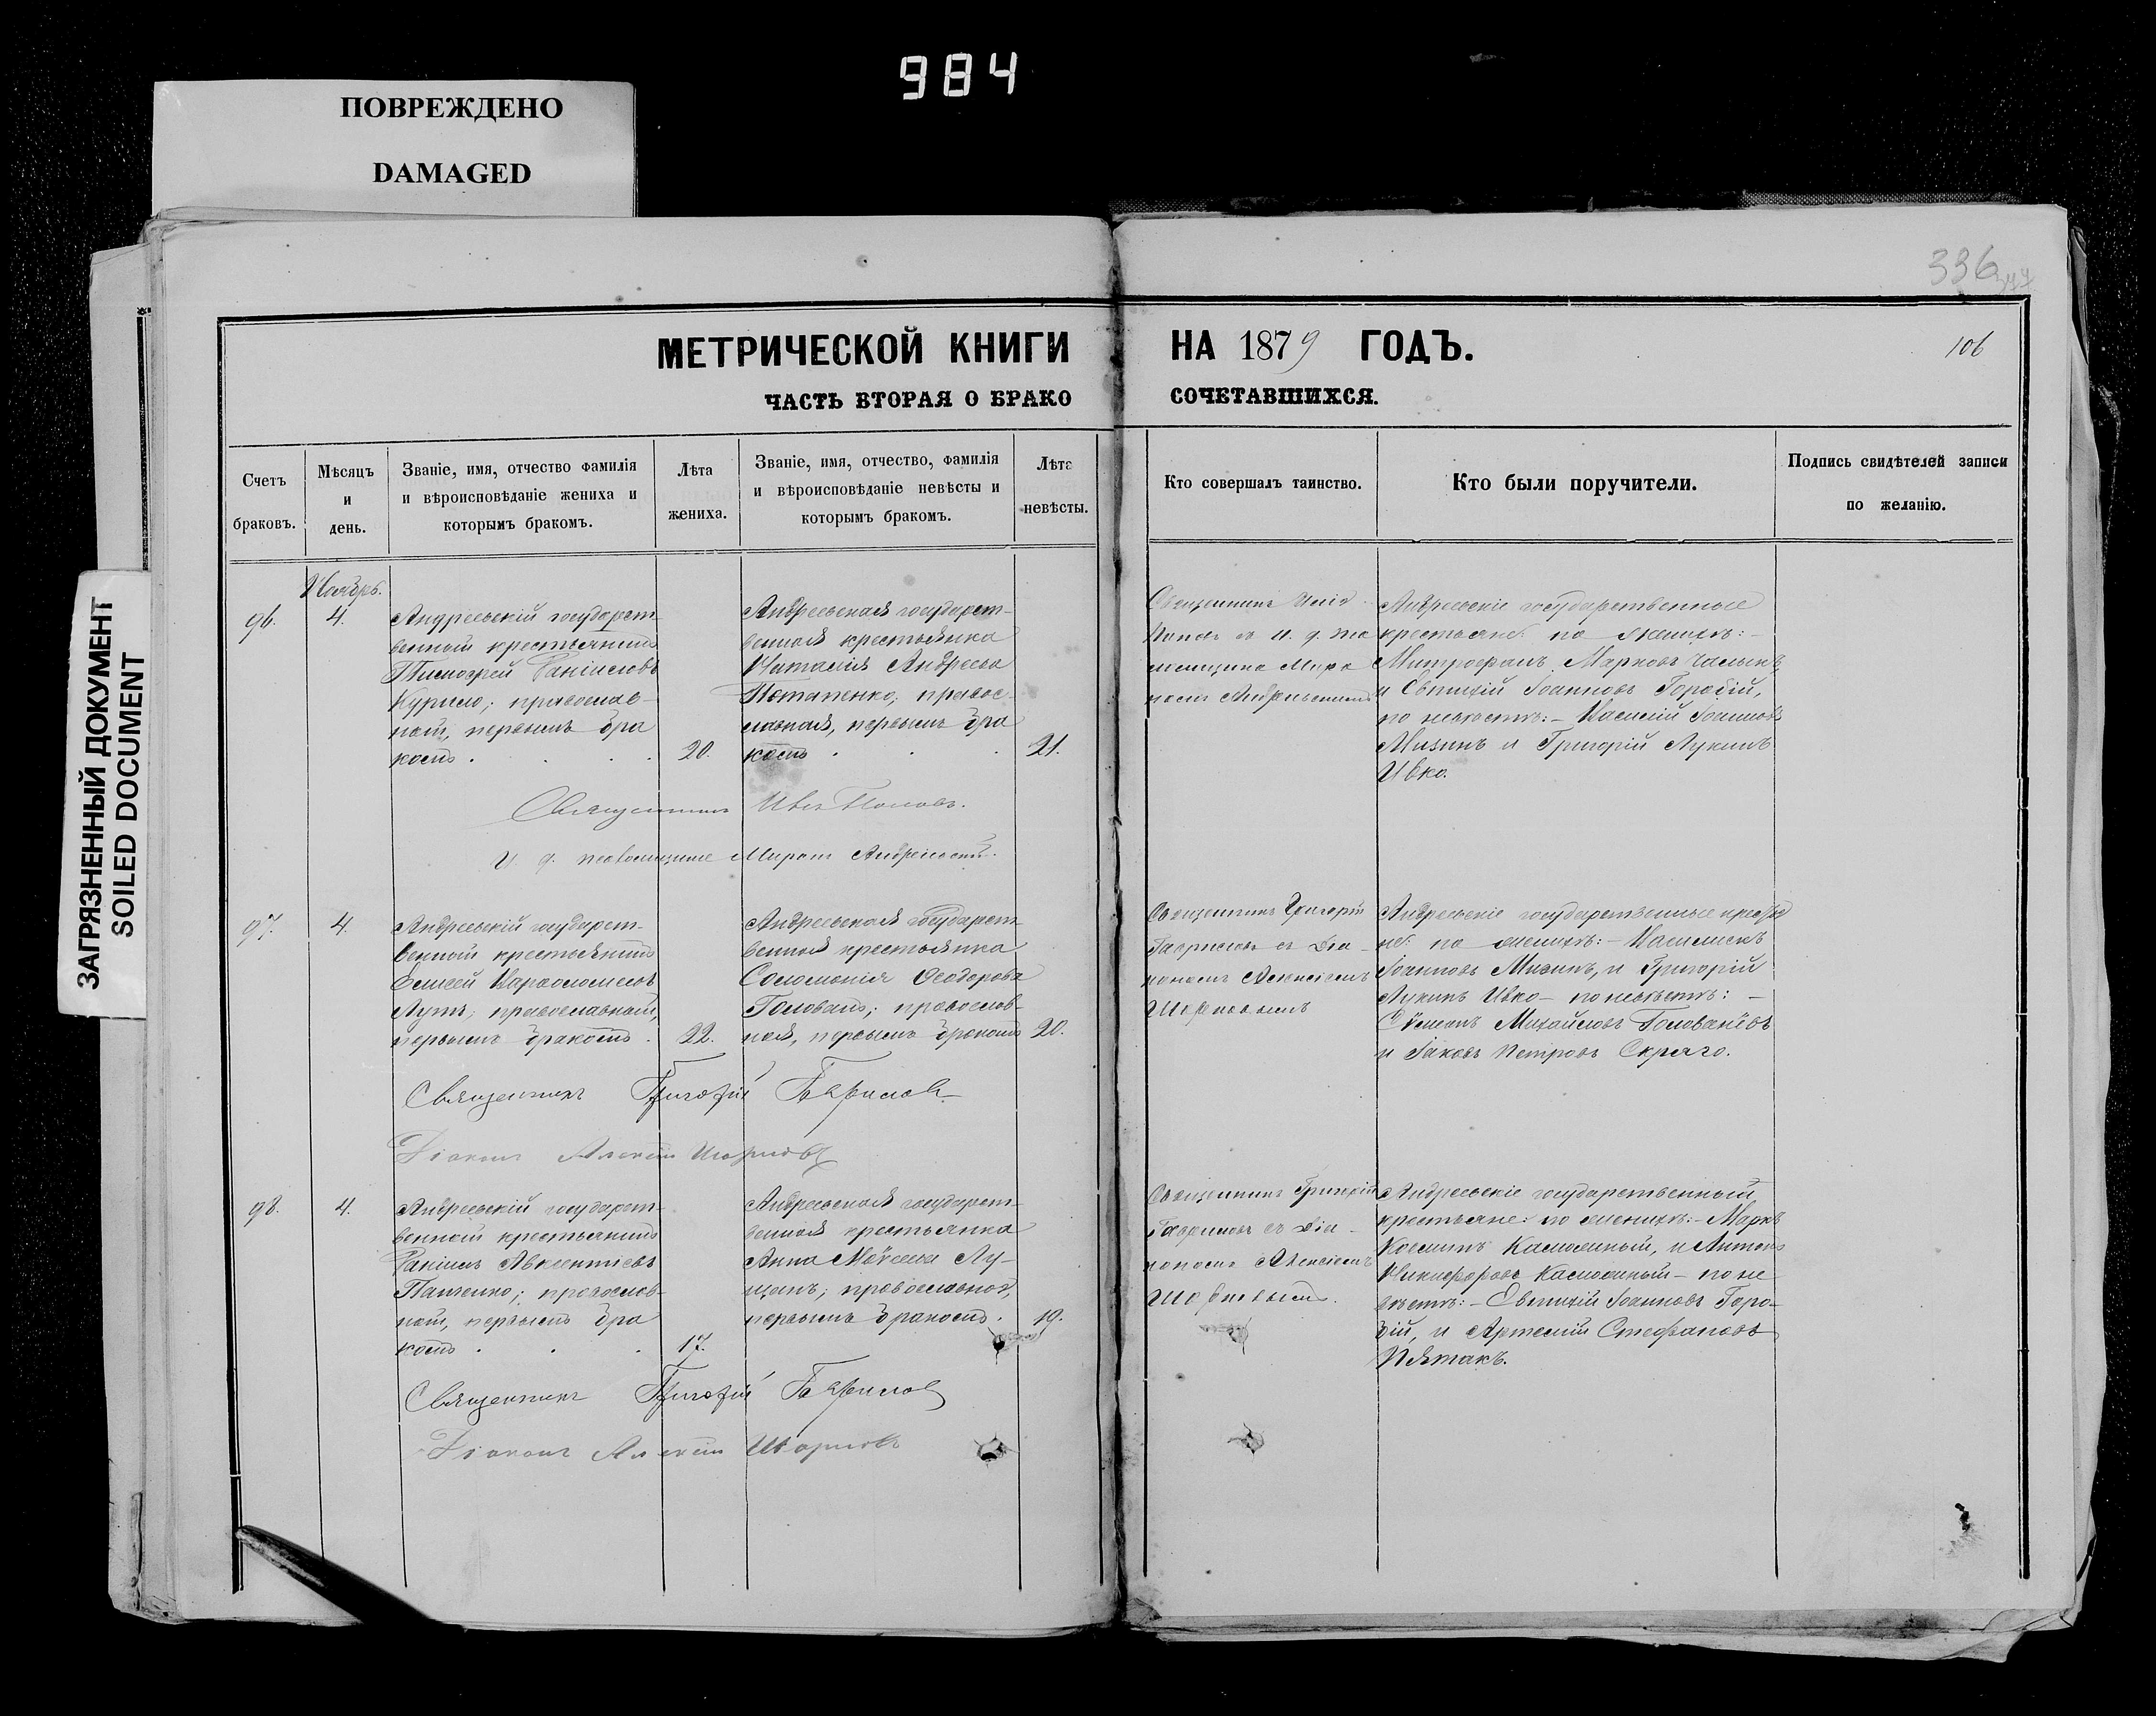 984
ПОВРЕЖДЕНО
DAMAGED
ЗАГРЯЗНЕННЫЙ ДОКУМЕНТ
SOILED DOCUMENT
336
МЕТРИЧЕСКОЙ КНИГИ НА 1879 ГОДЪ.
106
ЧАСТЬ ВТОРАЯ О БРАКО СОЧЕТАВШИХСЯ.
Счетъ
браковъ.
Мѣсяцъ
и
день.
Званіе, имя, отчество фамилія
и вѣроисповѣданіе жениха и
которымъ бракомъ.
Лѣта
жениха.
Званіе, имя, отчество, фамилія
и вѣроисповѣданіе невѣсты и
которымъ бракомъ.
Лѣта
невѣсты.
Кто совершалъ таинство.
Кто были поручители.
Подпись свидѣтелей записи
по желанію.
Ноябрь.
96.
4.
Андреевскій государст-
венный крестьянинъ
Тимофей Даніиловъ
Курило; православ-
ный, первымъ бра
комъ
20.
Андреевская государст-
венная крестьянка
Наталія Андреева
Потапенко; правос-
лавная, первымъ бра
комъ
21.
Священникъ
Поповъ съ и. д.
Андреевскіе государственные
крестьяне: по женихѣ:-
Митрофанъ Марковъ
и Евтихій Іоанновъ Горобій,
по невѣстѣ:- Василій Іоанновъ
Мизинъ и Григорій Лукинъ
Ивко.
Священникъ Поповъ.
И. д. псаломщика Миронъ
97.
4.
Андреевскій государст-
венный крестьянинъ
Елисей Варѳоломеевъ
православный,
первымъ бракомъ
22.
Андреевская государст-
венная крестьянка
Соломонія Ѳеодорова
Головань; православ-
ная, первымъ бракомъ
20.
Священникъ Григорій
Гавриловъ съ діа-
кономъ Алексіемъ
Андреевскіе государственные крестья
не: по женихѣ:-
Іоанновъ Мизинъ, и Григорій
Лукинъ Ивко - по невѣстѣ: -
Сѵмеонъ Михайловъ
и Іаковъ Петровъ
Священникъ Григорій Гавриловъ
Діаконъ Алексій
98.
4.
Андреевскій государст-
венный крестьянинъ
Даніилъ Авксентіевъ
Панченко; православ-
ный, первымъ бра
комъ
17.
Андреевская государст-
венная крестьянка
Анна Моѵсеева Лу-
православная,
первымъ бракомъ.
19.
Священникъ Григорій
Гавриловъ съ діа-
кономъ Алексіемъ
Андреевскіе государственный
крестьяне: по женихѣ:- Маркъ
Козминъ и Антонъ
Никифоровъ - по не
вѣстѣ:- Евтихій Іоанновъ Горо-
бій, и Артемій Стефановъ
Пятакъ.
Священникъ Григорій Гавриловъ
Діаконъ Алексій